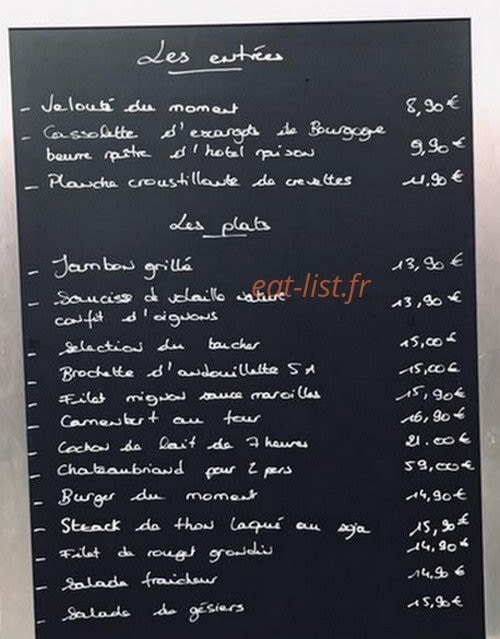 Les entrées
- Velouté du moment 8,90€
- Cassolette d'escargots de Bourgogne
beurre maître d'hotel maison 9,90€
- Planche croustillante de crevettes 11,90€
Les plats
- Jambon grillé 13,90€
eat-list.fr
- Saucisse de volaille nature 13,90€
confit d'oignons
- Selection du boucher 15,00€
- Brochette d'andouillette 5A 15,00€
- Filet mignon sauce maroilles 15,90€
- Camembert au four 16,90€
- Cochon de lait de 7 heures 21.00€
- Chateaubriand pour 2 pers 59,00€
- Burger du moment 14,90€
- Steack de thon laqué au soja 15,90€
- Filet de rouget grondin 14,90€
- Salade fraicheur 14,90€
- Salade de gésiers 15,90€